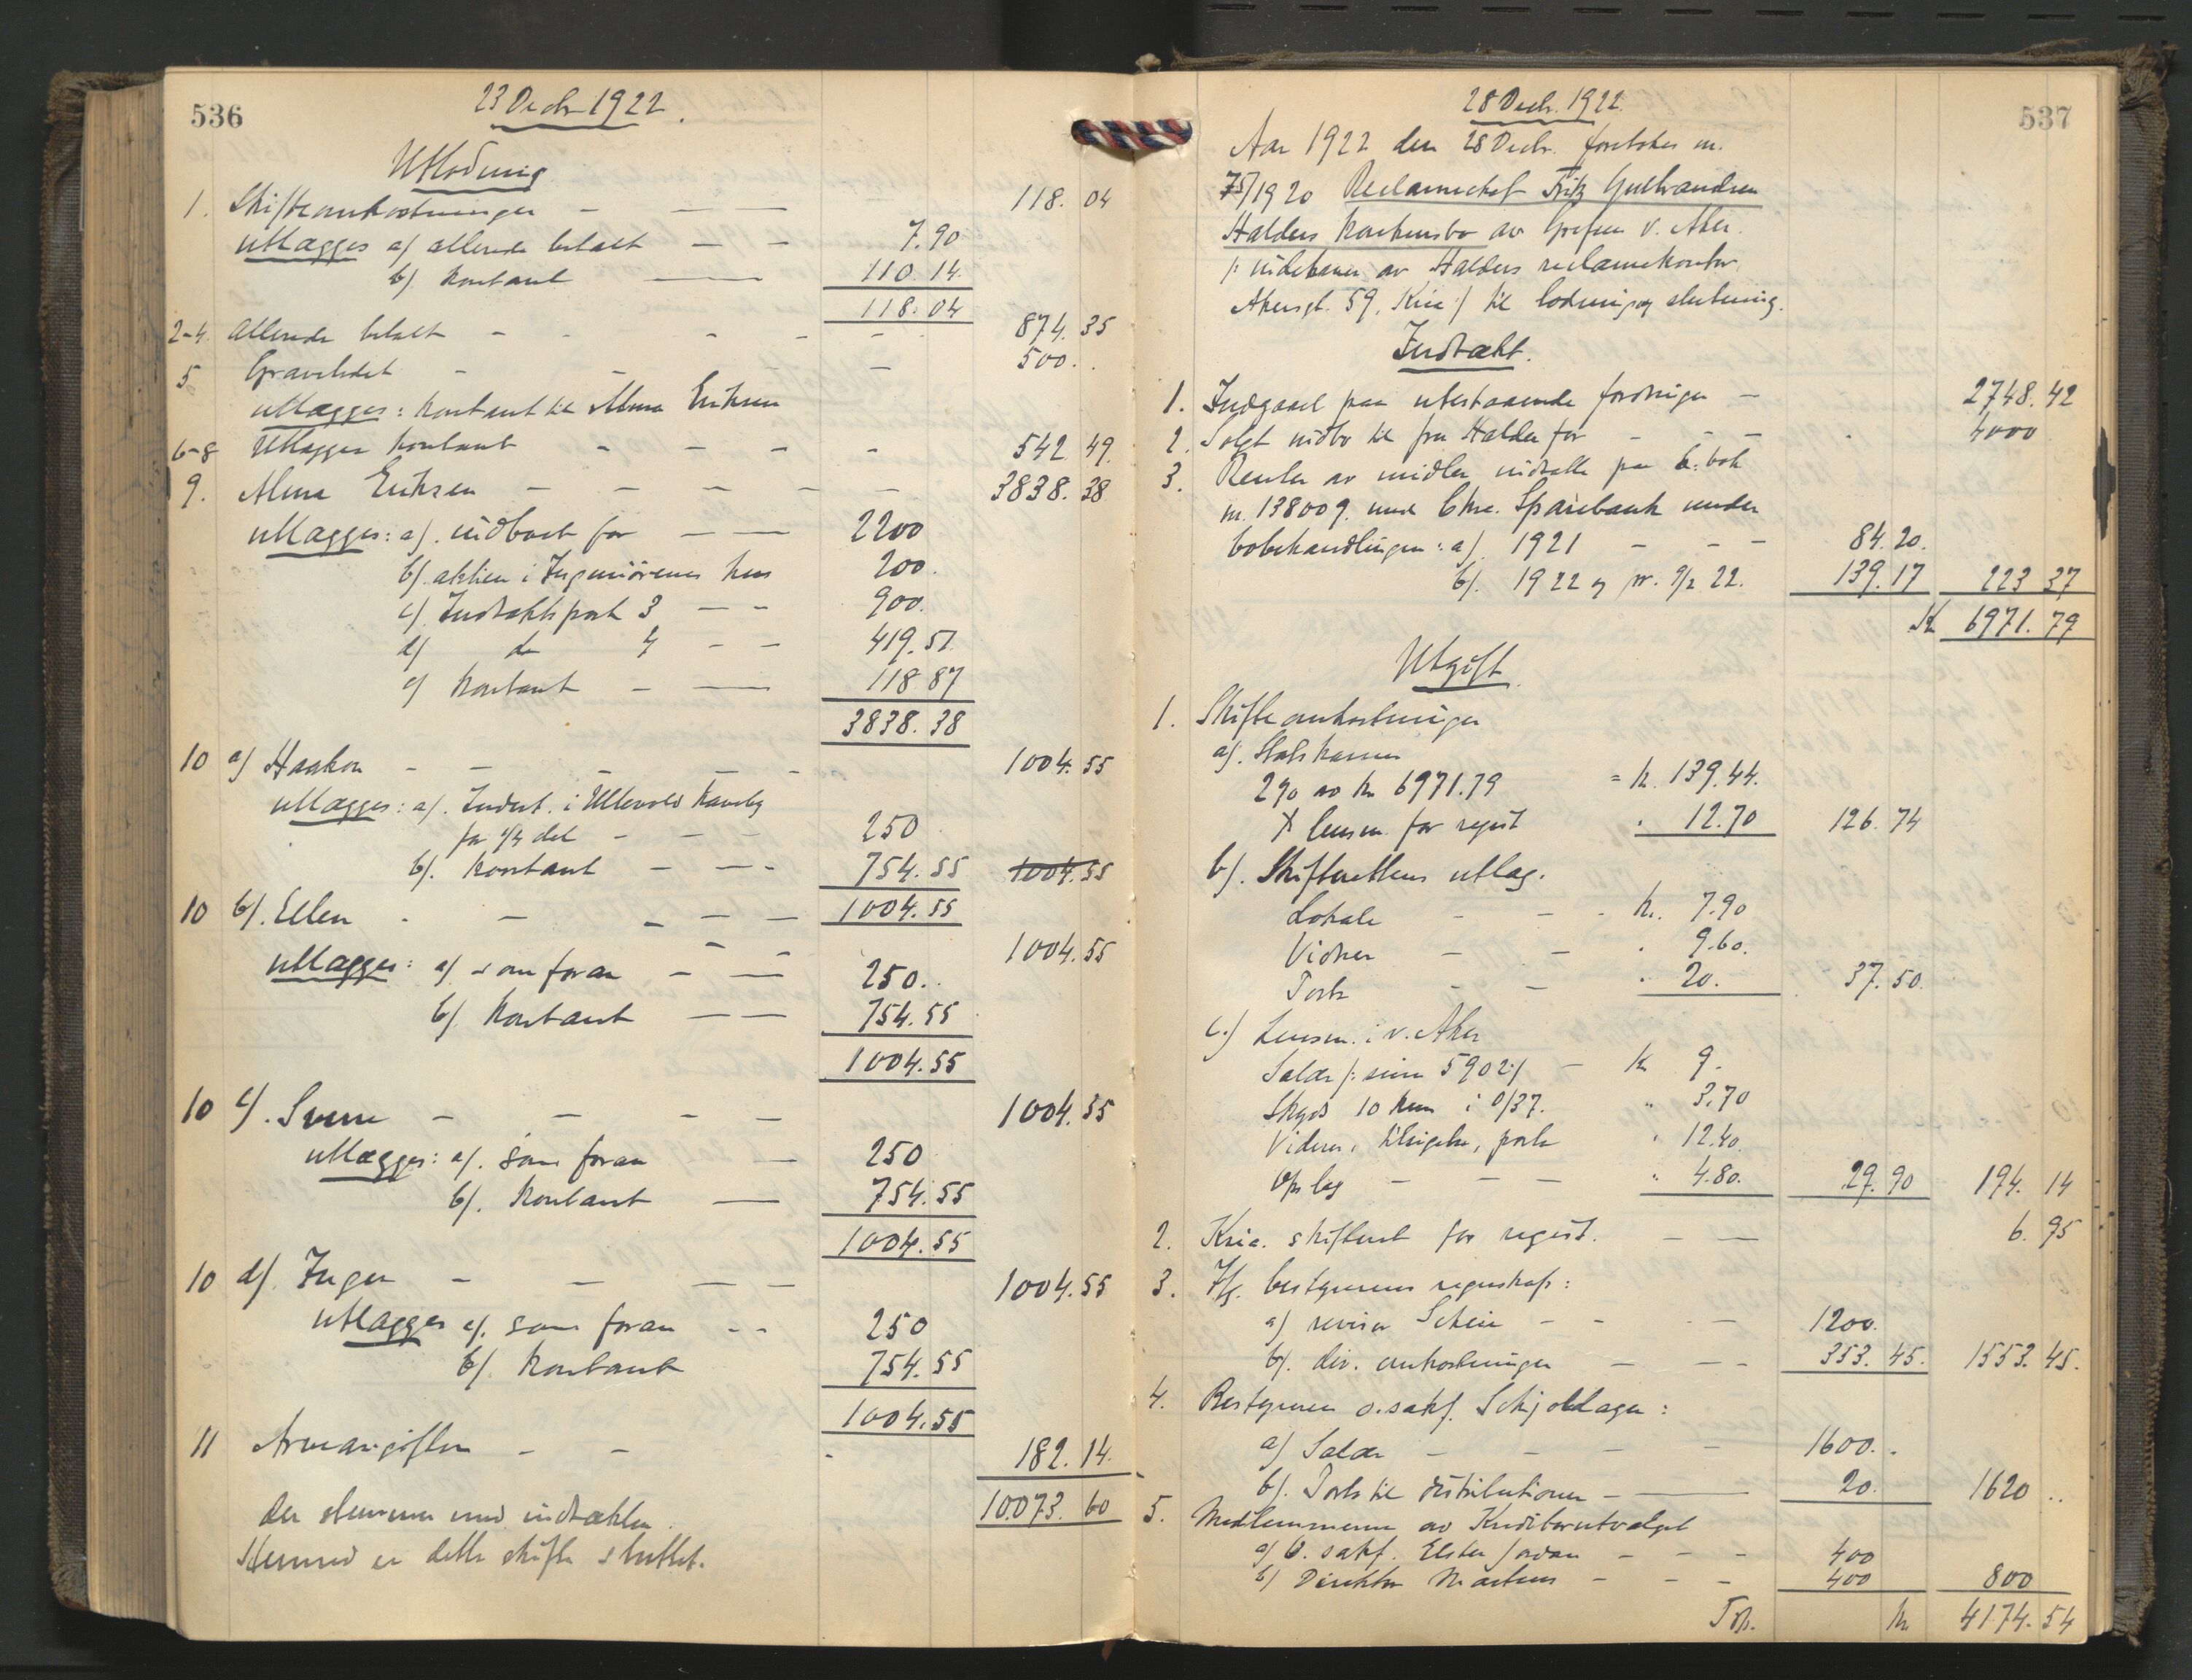 536
23 Decbr 1922.
Utlodning
1. Skifteomkostninger - — - 118. 04
utlægges a/ allerede betalt — - 7.90
b/. kontant — 110. 14
118. 04
2-4. Allerede betalt - - - - - 874. 35
5 Gravstedet - - — 500. .
utlægges: kontant til Alma Eriksen
6-8 Utlægges kontant - - - - 542. 49
9. Alma Eriksen - - - - - 3838. 38
utlægges: a/. indboet for — — 2200
b/. aktien i Ingeniørenes hus 200.
c/. Indtækts post 3 — - 900.
d/ do 4 - — 419.51
e/ kontant - — 118 87
3838. 38
10 a/ Haakon - - - - - 1004. 55
utlægges: a/. Indest. i Ullevold Haveby
for 1/4 del - - - 250
b/. kontant — - - 754. 55
10 b/. Ellen - - - - - 1004. 55
1004. 55
utlægges: a/ som foran - — 250..
b/. kontant — — 754.55
1004. 55
10 c/. Sverre - - - - 1004. 55
utlægges: a/. som foran — 250
b/. kontant — 754. 55
1004. 55
10 d/. Inger - - - - 1004. 55
utlægges a/. som foran - - 250
b/. kontant 754. 55
1004. 55
11 Arveavgiften - - - 182. 14.
10.073. 60
der stemmer med indtækten.
Hermed er dette skifte sluttet.
537
28 Decbr. 1922.
Aar 1922 den 28 Decbr. foretokes nr.
75/1920 Reclamechef Fritz Gulbrandsen
Halders konkursbo av Grefsen v. Aker.
/: indehaver av Halders reclamekontor,
Akersgt. 59, Kria :/ til lodning og slutning.
Indtækt.
1. Indgaaet paa utestaaende fordringer - 2748. 42
2. Solgt indbo til fru Halder for - - - 4000
3. Renter av midler indsatte paa k. bok
nr. 138009. med Chra. Sparebank under
bobehandlingen: a/. 1921 - - - 84. 20.
b/. 1922 og pr. 9/2 22. 139. 17 223 37
Kr 6971. 79
Utgift.
1. Skifteomkostninger
a/. Statskassen
2% av kr 6971.79 = kr. 139.44.
÷ lensm. for regist " 12.70 126. 74
b/. Skifterettens utlæg.
Lokale - - - kr. 7.90
Vidner - - " 9.60.
Porto - - " 20. 37. 50.
c/ Lensm. i v. Aker
Salær /: sum 5902:/ - kr 9.
Skyds 10 km i 0/37. " 3.70
Vidner, tilsigelse, porto " 12.40.
Opslag - - - " 4.80. 29. 90 194. 14
2. Kria. skifteret for regist. — — 6. 95
3. Iflg. bestyrerens regnskap:
a/ revisor Schive - - - - 1200.
b/. div. omkostninger - - - 353. 45. 1553. 45.
4. Bestyreren o.sakf. Schjoldager:
a/ Salær - - - - 1600. .
b/. Porto til distributioner - — 20. 1620 ..
5. Medlemmerne av Kreditorutvalget
a/ o. sakf. Elster Jordan - - - 400
b/ Direktør Martens - - - 400 800
Tsp. kr 4174. 54